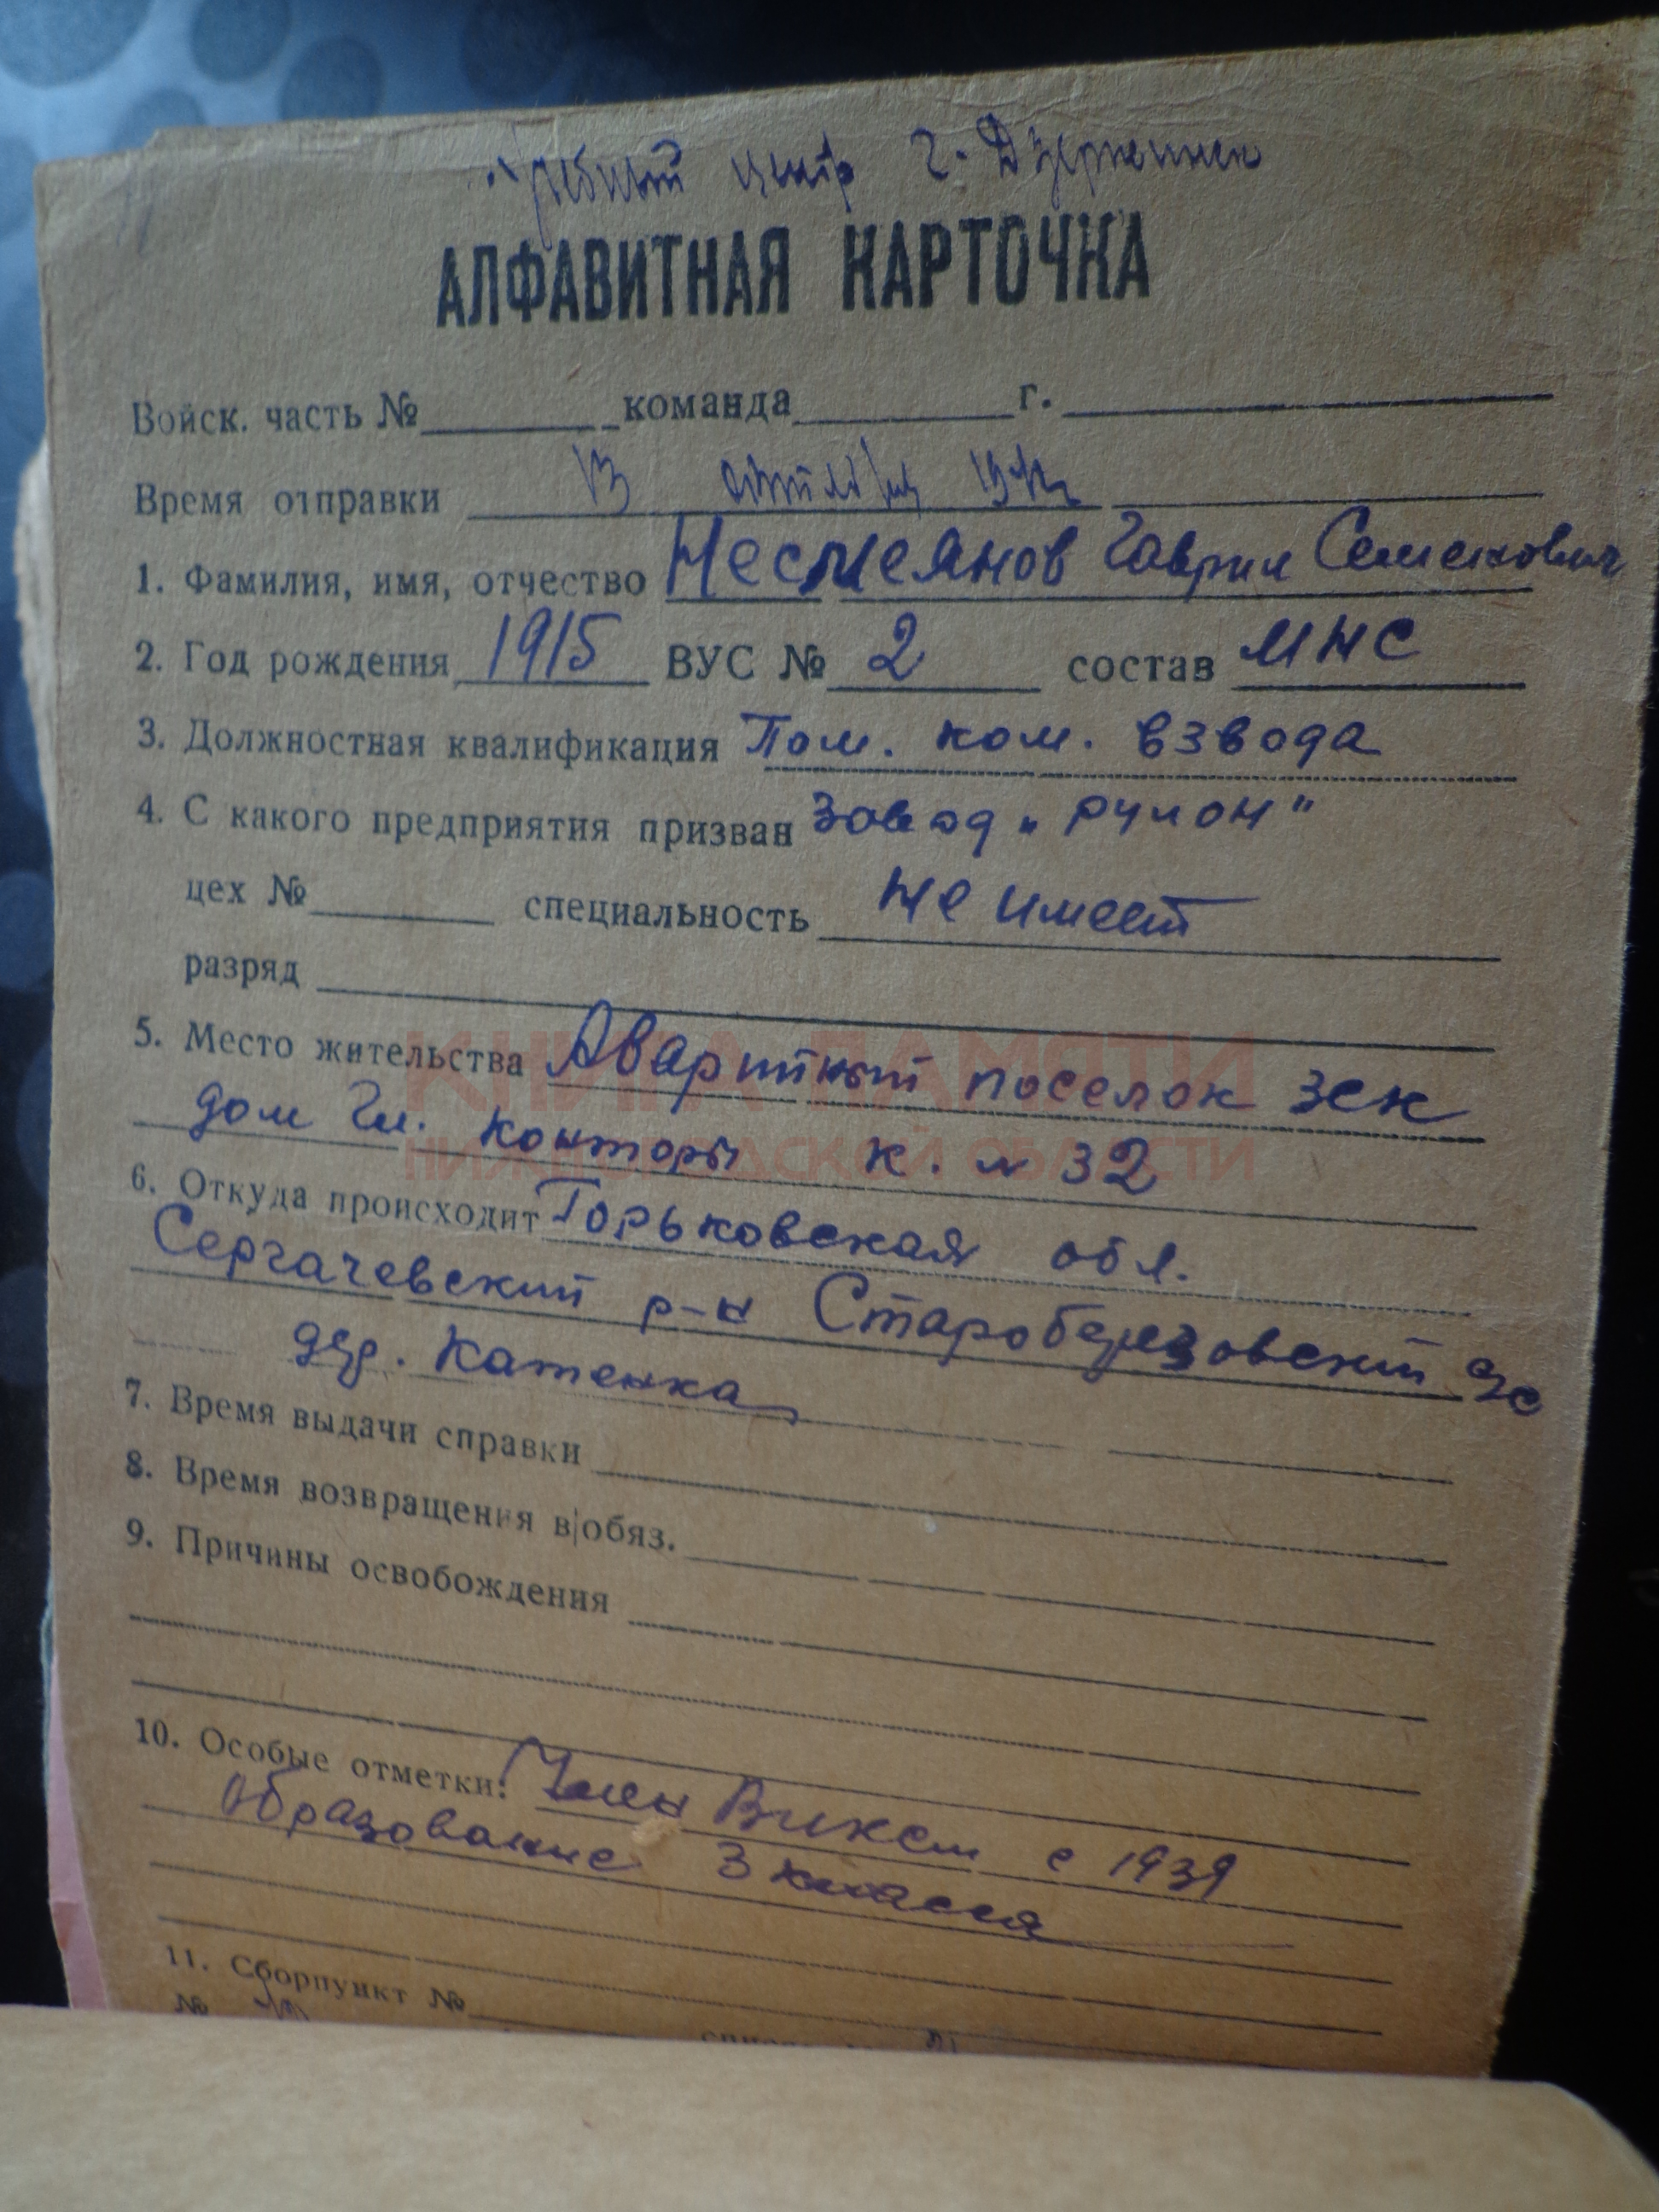 Учебный центр г. Дзержинск
АЛФАВИТНАЯ КАРТОЧКА
Войск. часть № команда г.
Время отправки 13
1. Фамилия, имя, отчество Несмеянов Гаврил Семенович
2. Год рождения 1915 ВУС № 2 состав МНС
3. Должностная квалификация Пом. ком. взвода
4. С какого предприятия призван завод „Рулон"
цех № специальность не имеет
разряд
5. Место жительства поселок
КНИГА ПАМЯТИ
дом Гл. конторы к. № 32
НИЖЕГОРОДСКОЙ ОБЛАСТИ
6. Откуда происходит Горьковская обл.
Сергачевский р-н Староберезовский
дер. Катенка
7. Время выдачи справки
8. Время возвращения в|обяз.
9. Причины освобождения
10. Особые отметки: Член с 1939
Образование 3 класса
11. Сборпункт №
№